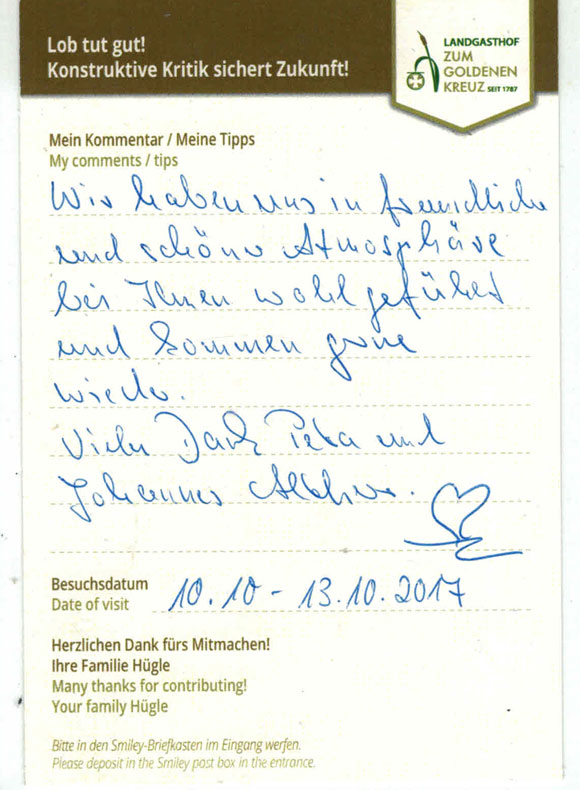 Lob tut gut!
Konstruktive Kritik sichert Zukunft!
LANDGASTHOF
ZUM
GOLDENEN
KREUZ SEIT 1787
Mein Kommentar / Meine Tipps
My comments / tips
Wir haben uns in freundlicher
und schöner Atmosphäre
bei Ihnen wohl gefühlt
und kommen gerne
wieder.
Vielen Dank Petra und
Johannes
Besuchsdatum
Date of visit 10.10 - 13.10.2017
Herzlichen Dank fürs Mitmachen!
Ihre Familie Hügle
Many thanks for contributing!
Your family Hügle
Bitte in den Smiley-Briefkasten im Eingang werfen.
Please deposit in the Smiley post box in the entrance.